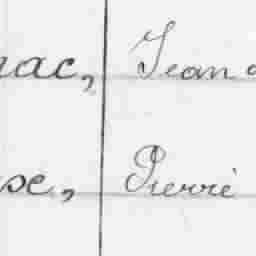 nac, Jean
se, Pierre